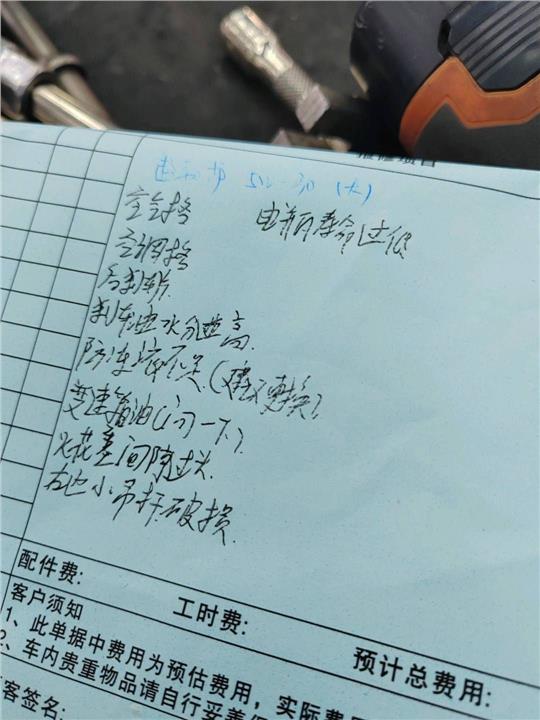 超和护 5W-30 (大)
空气格
电瓶寿命过低
空调格
后刹车片
刹车油水分过高
防冻液不足(建议更换)
变速箱油(问一下)
火花塞间隙过大
左边小吊杆破损
配件费:
工时费:
预计总费用:
客户须知
1、此单据中费用为预估费用,实际费
2、车内贵重物品请自行妥善
客签名: